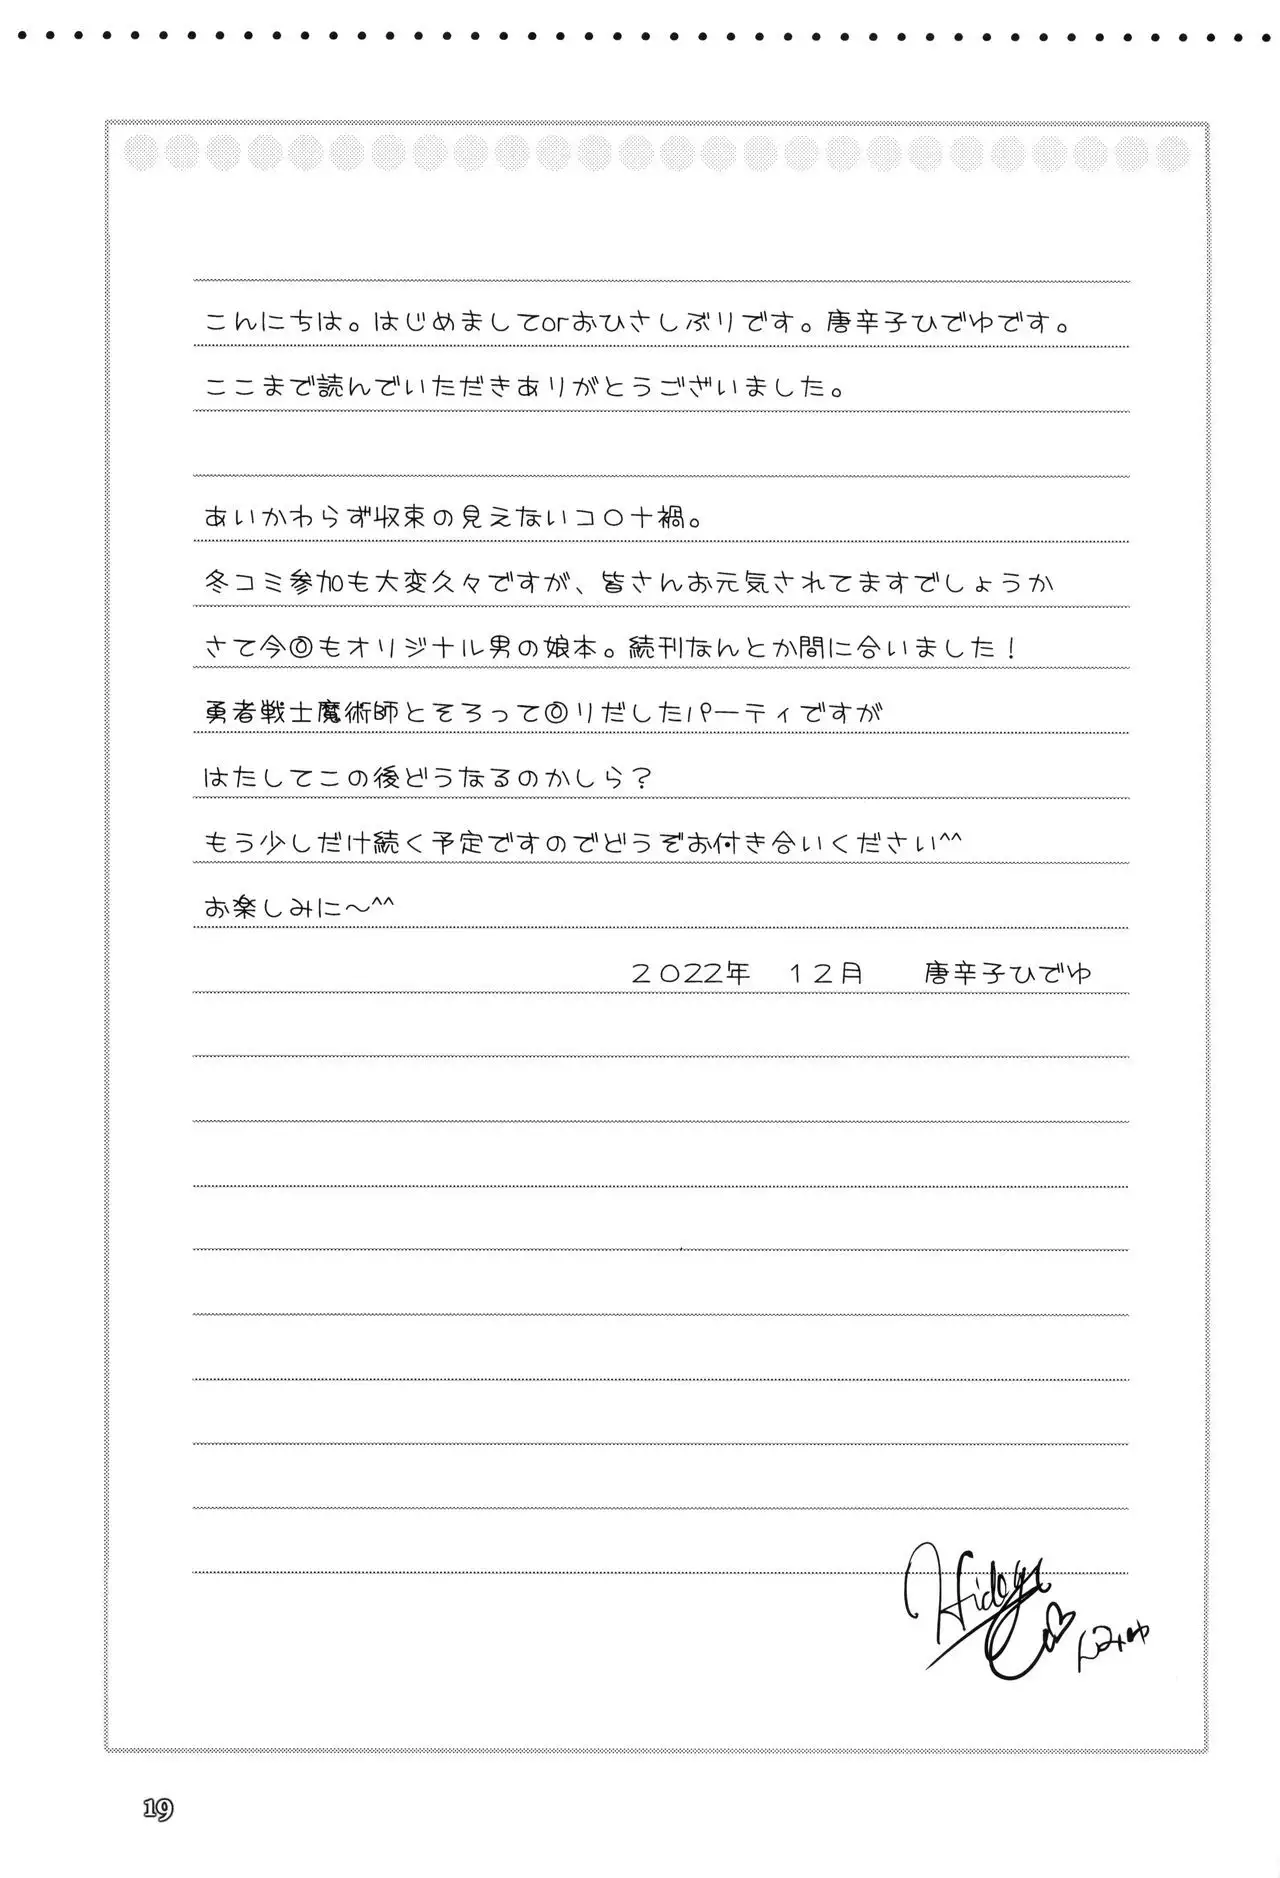 こんにちは。はじめましてorおひさしぶりです。唐辛子ひでゆです。
ここまで読んでいただきありがとうございました。
あいかわらず収束の見えないコロナ禍。
冬コミ参加も大変久々ですが、皆さんお元気されてますでしょうか
さて今回もオリジナル男の娘本。続刊なんとか間に合いました！
勇者戦士魔術師とそろって回りだしたパーティですが
はたしてこの後どうなるのかしら？
もう少しだけ続く予定ですのでどうぞお付き合いください^^
お楽しみに～^^
2022年　12月　　唐辛子ひでゆ
Hideyu
19